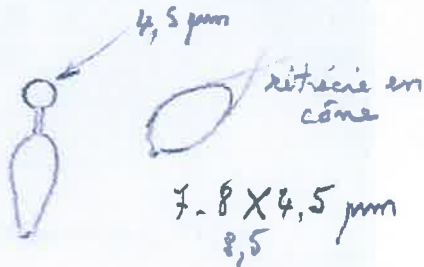 4,5 µm
rétrécie en
cône
7-8 X 4,5 µm
8,5